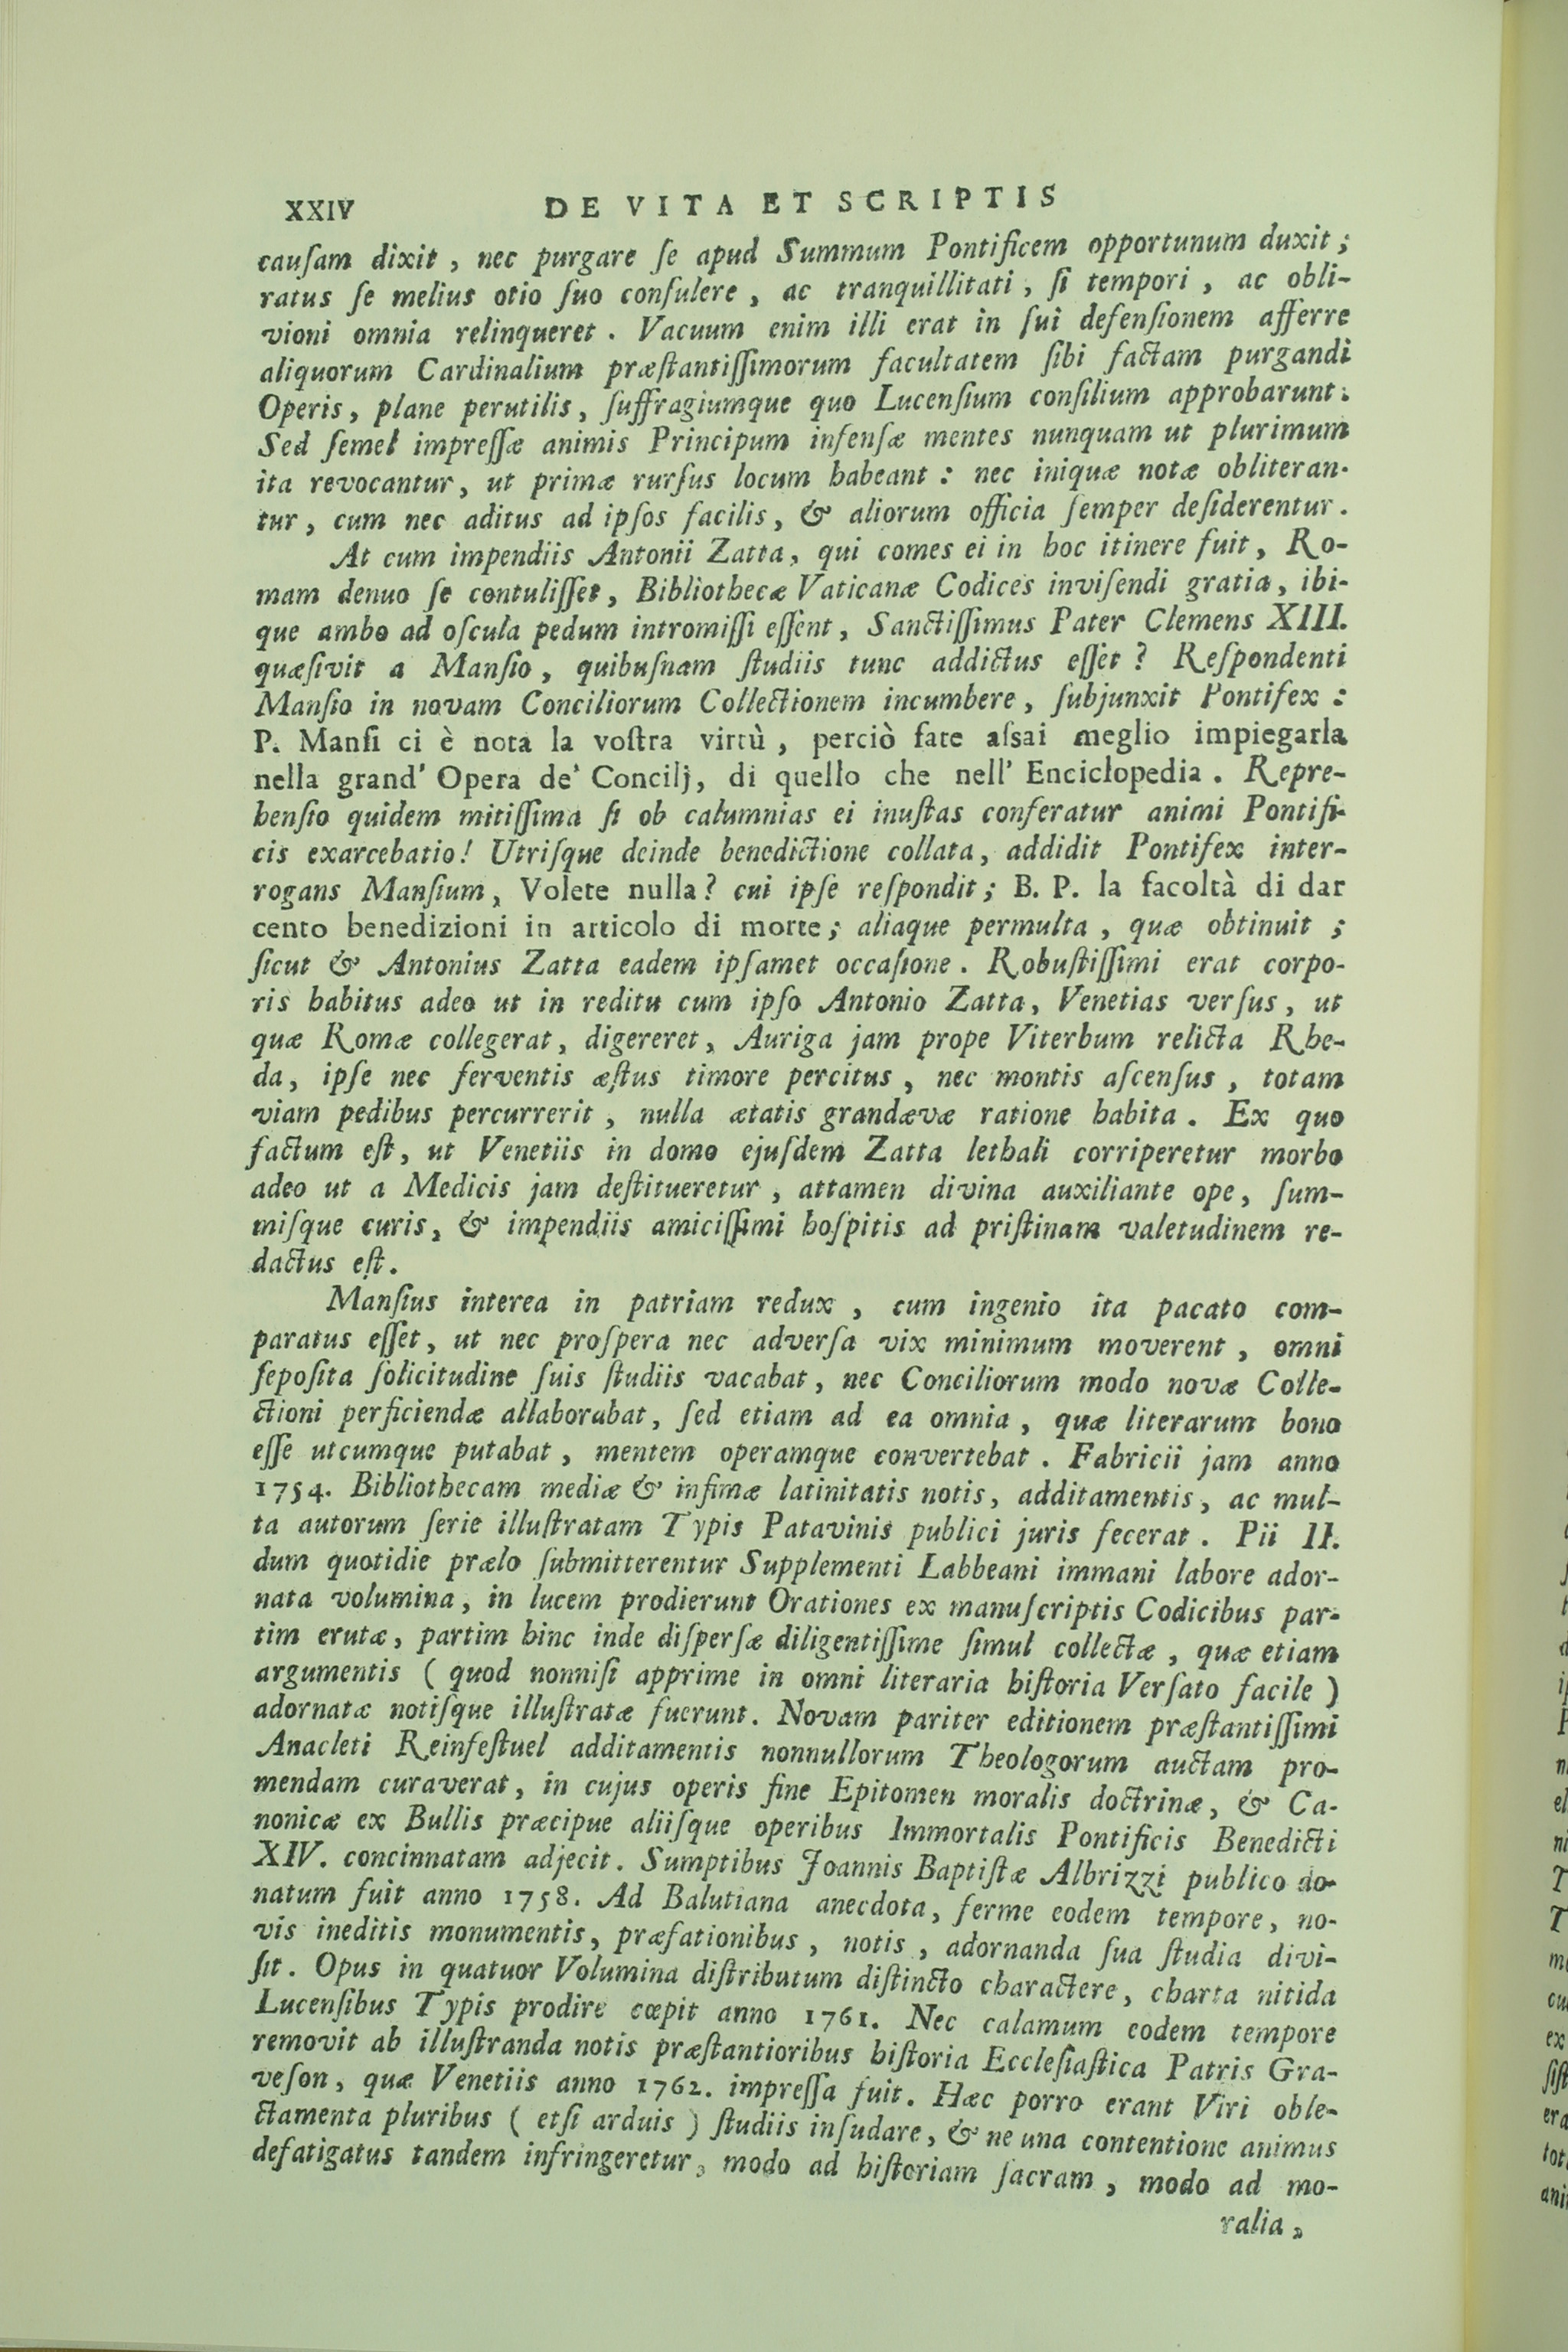 XXIV DE VITA ET SCRIPTIS
cauſam dixit, nec purgare ſe apud Summum Pontificem opportunum duxit;
ratus ſe melius otio ſuo conſulere, ac tranquillitati, ſi tempori, ac obli-
vioni omnia relinqueret. Vacuum enim illi erat in ſui defenſionem afferre
aliquorum Cardinalium præſtantiſſimorum facultatem ſibi factam purgandi
Operis, plane perutilis, ſuffragiumque quo Lucenſium conſilium approbarunt.
Sed ſemel impreſſæ animis Principum infenſæ mentes nunquam ut plurimum
ita revocantur, ut primæ rurſus locum habeant: nec iniquæ notæ obliteran-
tur, cum nec aditus ad ipſos facilis, & aliorum officia ſemper deſiderentur.
At cum impendiis Antonii Zatta, qui comes ei in hoc itinere fuit, Ro-
mam denuo ſe contuliſſet, Bibliothecæ Vaticanæ Codices inviſendi gratia, ibi-
que ambo ad oſcula pedum intromiſſi eſſent, Sanctiſſimus Pater Clemens XIII.
quæſivit a Manſio, quibuſnam ſtudiis tunc addictus eſſet? Reſpondenti
Manſio in novam Conciliorum Collectionem incumbere, ſubjunxit Pontifex:
P. Manſi ci è nota la voſtra virtù, perciò fate aſsai meglio impiegarla
nella grand' Opera de' Concilj, di quello che nell' Enciclopedia. Repre-
henſio quidem mitiſſima ſi ob calumnias ei inuſtas conferatur animi Pontifi-
cis exarcebatio! Utriſque deinde benedictione collata, addidit Pontifex inter-
rogans Manſium, Volete nulla? cui ipſe reſpondit; B. P. la facoltà di dar
cento benedizioni in articolo di morte; aliaque permulta, quæ obtinuit;
ſicut & Antonius Zatta eadem ipſamet occaſione. Robuſtiſſimi erat corpo-
ris habitus adeo ut in reditu cum ipſo Antonio Zatta, Venetias verſus, ut
quæ Romæ collegerat, digereret, Auriga jam prope Viterbum relicta Rhe-
da, ipſe nec ferventis æſtus timore percitus, nec montis aſcenſus, totam
viam pedibus percurrerit, nulla ætatis grandævæ ratione habita. Ex quo
factum eſt, ut Venetiis in domo ejuſdem Zatta lethali corriperetur morbo
adeo ut a Medicis jam deſtitueretur, attamen divina auxiliante ope, ſum-
miſque curis, & impendiis amiciſſimi hoſpitis ad priſtinam valetudinem re-
dactus eſt.
Manſius interea in patriam redux, cum ingenio ita pacato com-
paratus eſſet, ut nec proſpera nec adverſa vix minimum moverent, omni
ſepoſita ſolicitudine ſuis ſtudiis vacabat, nec Conciliorum modo novæ Colle-
ctioni perficiendæ allaborabat, ſed etiam ad ea omnia, quæ literarum bono
eſſe utcumque putabat, mentem operamque convertebat. Fabricii jam anno
1754. Bibliothecam mediæ & infimæ latinitatis notis, additamentis, ac mul-
ta autorum ſerie illuſtratam Typis Patavinis publici juris fecerat. Pii II.
dum quotidie prælo ſubmitterentur Supplementi Labbeani immani labore ador-
nata volumina, in lucem prodierunt Orationes ex manuſcriptis Codicibus par-
tim erutæ, partim hinc inde diſperſæ diligentiſſime ſimul collectæ, quæ etiam
argumentis ( quod nonniſi apprime in omni literaria hiſtoria Verſato facile )
adornatæ notiſque illuſtratæ fuerunt. Novam pariter editionem præſtantiſſimi
Anacleti Reinfeſtuel additamentis nonnullorum Theologorum auctam pro-
mendam curaverat, in cujus operis fine Epitomen moralis doctrinæ, & Ca-
nonicæ ex Bullis præcipue aliiſque operibus Immortalis Pontificis Benedicti
XIV. concinnatam adjecit. Sumptibus Joannis Baptiſtæ Albrizzi publico do-
natum fuit anno 1758. Ad Balutiana anecdota, ferme eodem tempore, no-
vis ineditis monumentis, præfationibus, notis, adornanda ſua ſtudia divi-
ſit. Opus in quatuor Volumina diſtributum diſtincto charactere, charta nitida
Lucenſibus Typis prodire cœpit anno 1761. Nec calamum eodem tempore
removit ab illuſtranda notis præſtantioribus hiſtoria Eccleſiaſtica Patris Gra-
veſon, quæ Venetiis anno 1762. impreſſa fuit. Hæc porro erant Viri oble-
ctamenta pluribus ( etſi arduis ) ſtudiis inſudare, & ne una contentione animus
defatigatus tandem infringeretur, modo ad hiſtoriam ſacram, modo ad mo-
ralia,